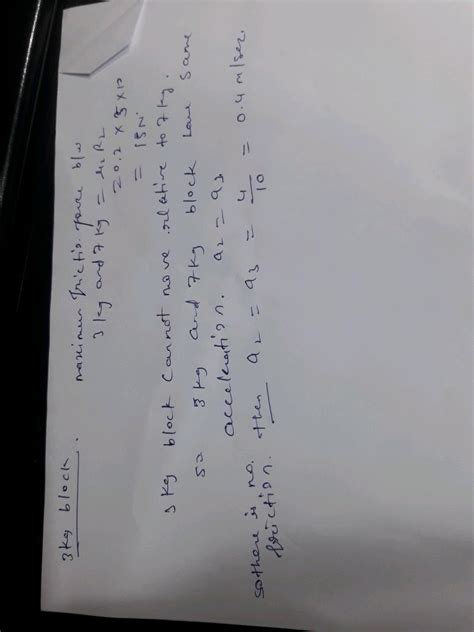 3kg block.
maximum friction force b/w
3 kg and 7 kg = μ2 R2
= 0.2 × 5 × 10
= 15N.
3 kg block cannot move relative to 7 kg.
so 3 kg and 7 kg block have same
acceleration. a2 = a3
so there is no
friction. then a2 = a3 = 4/10 = 0.4 m/sec